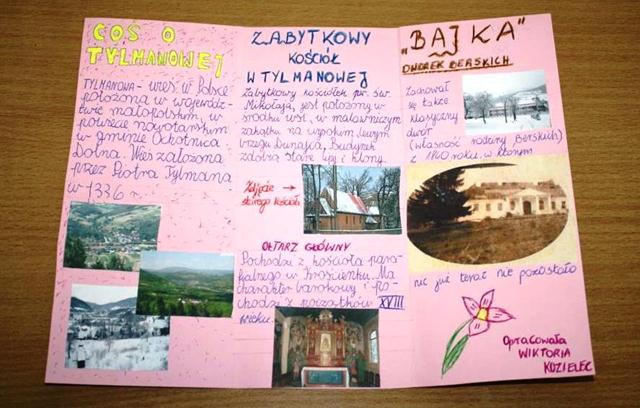 COŚ O
TYLMANOWEJ
TYLMANOWA - wieś w Polsce
położona w wojewódz-
twie małopolskim, w
powiecie nowotarskim
w gminie Ochotnica
Dolna. Wieś założona
przez Piotra Tylmana
w 1336 r.
ZABYTKOWY
KOŚCIÓŁ
W TYLMANOWEJ
Zabytkowy kościółek pw. św.
Mikołaja, jest położony w
środku wsi, w malowniczym
zakątku na wysokim, lewym
brzegu Dunajca. Budynek
zdobią stare lipy i klony.
Zdjęcie →
starego kościoła
OŁTARZ GŁÓWNY
Pochodzi z kościoła para-
fialnego w Krościenku. Ma
charakter barokowy i po-
chodzi z początków XVIII
wieku.
„BAJKA"
DWOREK BERSKICH
Zachował
się także
klasyczny
dwór
(własność rodziny Berskich)
z 1840 roku, w którym
nic już teraz nie pozostało
Opracowała
WIKTORIA
KOZIELEC